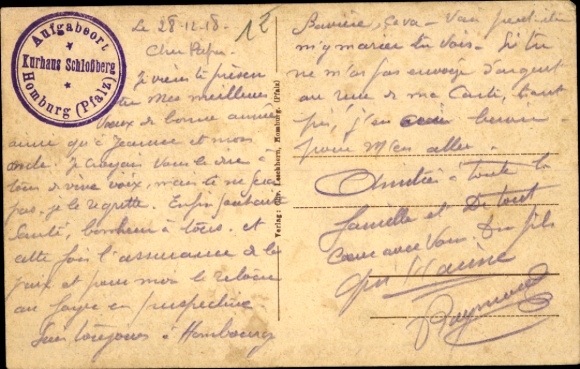 Aufgabeort
Kurhaus Schloßberg
Homburg (Pfalz)
Le 28-12-18-
12
Cher Papa
Je viens te présen
ter Mes meilleurs
Vœux de bonne année
ainsi qu'à Jeanne et mon
oncle. Je croyais vous le dire à
tous de vive voix, mais ce ne sera
pas, je le regrette. Enfin
Santé, bonheur à tous. et
cette fois l'assurance de la
paix et pour moi le retour
au foyer en perspective
Suis toujours à Hombourg
Verlag: Homburg (Pfalz)
Bavière, ça va - Vais
m'y marier tu vois. Si tu
ne m'as pas envoyé d'argent
au reçu de ma Carte, tant
pis, j'en besoin
pour m'en aller.
Amitié à toute la
famille et De tout
Cœur avec Vous. Du fils
qui
Raymond